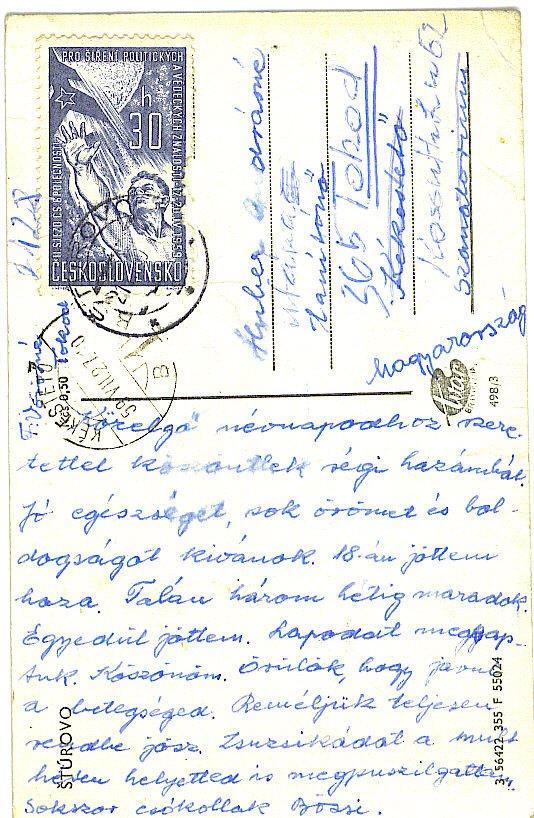 PRO ŠÍŘENÍ POLITICKÝCH
A VĚDECKÝCH ZNALOSTÍ
II. SJEZD ČS. SPOLEČNOSTI
30 h
ČESKOSLOVENSKO
Huber Andrásné
tanítónő
Tokod
Kékestető
Kossuth
Szanatórium
Magyarország
498/3
Kčs 0,50
Tokod
KÉKESTETŐ
Közelgő névnapodhoz szere-
tettel köszöntlek régi hazámból.
Jó egészséget, sok örömet és bol-
dogságot kivánok. 18.-án jöttem
haza. Talán három hétig maradok.
Egyedül jöttem. Lapodat megkap-
tuk. Köszönöm. Örülök, hogy javul
a betegséged. Reméljük teljesen
rendbe jösz. Zsuzsikádat a mult
héten helyetted is megpuszilgattam.
Sokszor csókollak Bözsi.
ŠTÚROVO
3-56422 355 F 55024